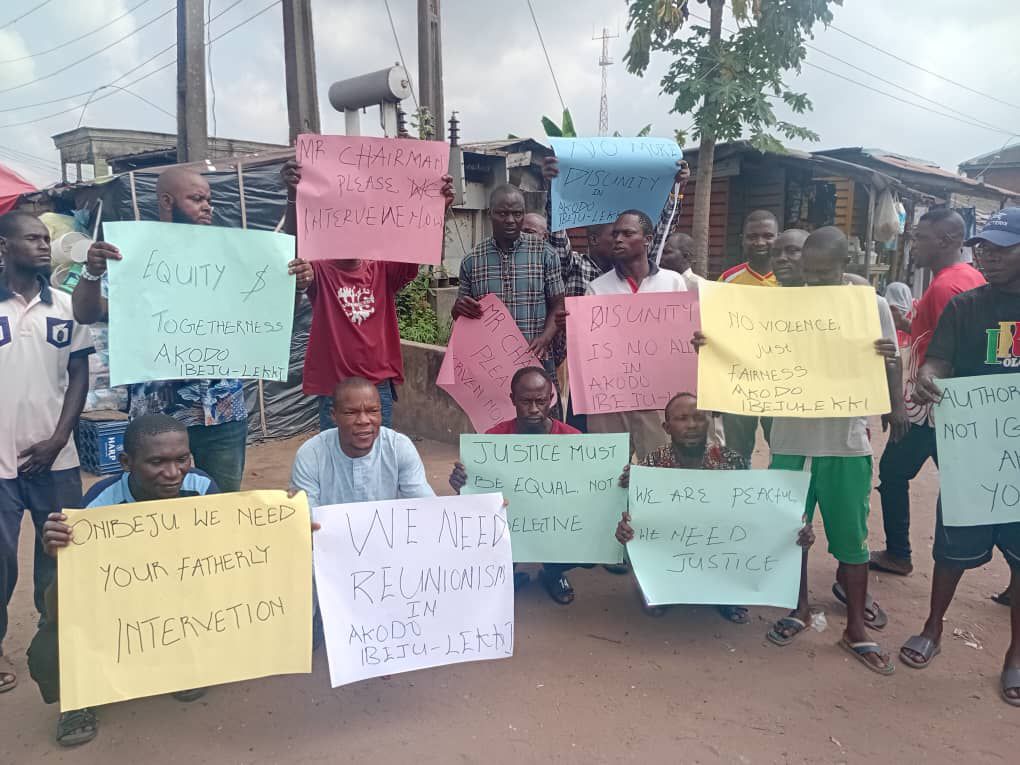 MR CHAIRMAN
PLEASE
INTERVENE NOW
NO MORE
DISUNITY
IN
AKODO
IBEJU-LEKKI
EQUITY $
TOGETHERNESS
AKODO
IBEJU-LEKKI
MR CHAIR
PLEA
DISUNITY
IS NO ALL
IN
AKODO
IBEJU-L
NO VIOLENCE,
just
FAIRNESS
AKODO
IBEJU LEKKI
AUTHOR
NOT IG
YO
JUSTICE MUST
BE EQUAL, NOT
ELETIVE
WE ARE PEACFUL
WE NEED
JUSTICE
ONIBEJU WE NEED
YOUR FATHERLY
INTERVETION
WE NEED
REUNIONISM
IN
AKODO
IBEJU-LEKKI
HARP